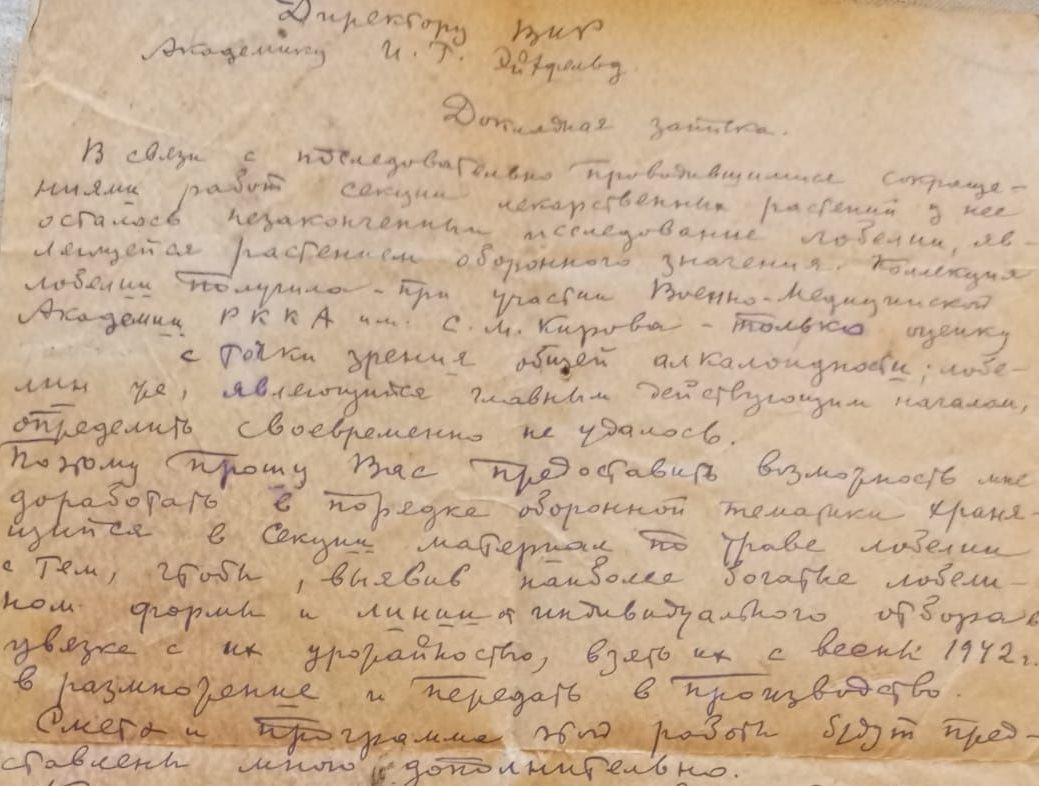 Директору ВИР
Академику И. Г. Эйхфельд
Докладная записка.
В связи с последовательно проводившимися сокраще-
ниями работ секции лекарственных растений у нее
осталось незаконченным исследование лобелии, яв-
ляющейся растением оборонного значения. Коллекция
лобелии получила - при участии Военно-Медицинской
Академии РККА им. С. М. Кирова - только оценку
с точки зрения общей алкалоидности; лобе-
лин же, являющийся главным действующим началом,
определить своевременно не удалось.
Поэтому прошу Вас предоставить возможность мне
доработать в порядке оборонной тематики храня-
щийся в Секции материал по траве лобелии
с тем, чтобы, выявив наиболее богатые лобели-
ном формы и линии индивидуального отбора в
увязке с их урожайностью, взять их с весны 1942 г.
в размножение и передать в производство.
Смета и программа этой работы будут пред-
ставлены мною дополнительно.